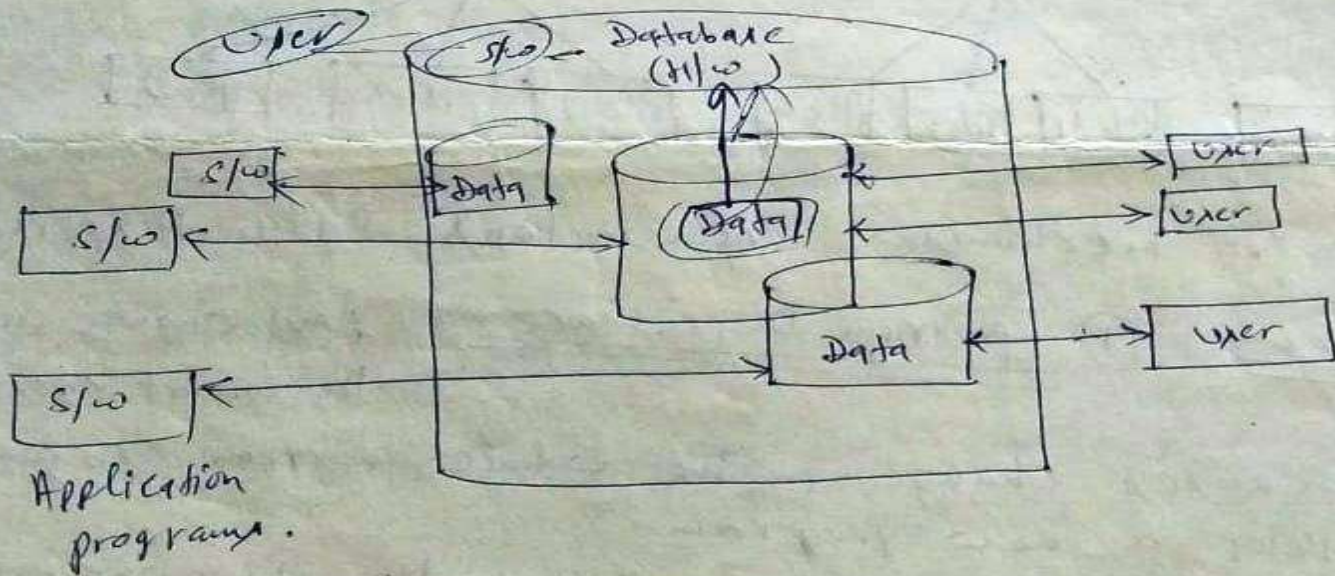 User
S/w - Database
(H/w)
S/w
Data
User
S/w
Data
User
Data
User
S/w
Application
programs.